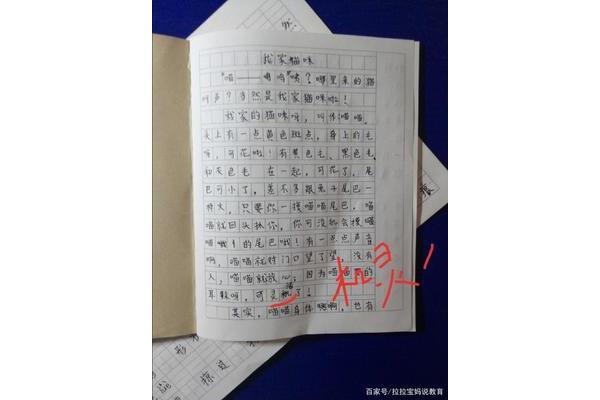 我家猫咪
"喵——呜呜"咦?哪里来的猫
叫声?当然是我家猫咪啦!
我家的猫咪呀,叫作喵喵。
头上有一点黄色斑点,身上的毛
呀,可花啦!有黄色毛、黑色毛、
和灰色毛 在一起,可花了,尾
巴可小了,差不多跟兔子尾巴一
样大,只要你一摸喵喵尾巴,喵
喵就回头抓你,你可没机会摸喵
喵 的尾巴哦!有一点点声音
啊,喵喵就对门口望了望,没有
人,喵喵就放心,因为喵喵 的
耳朵呀,可灵 了!
其实,喵喵身体 啊,也有
机灵!
百家号/拉拉宝妈说教育